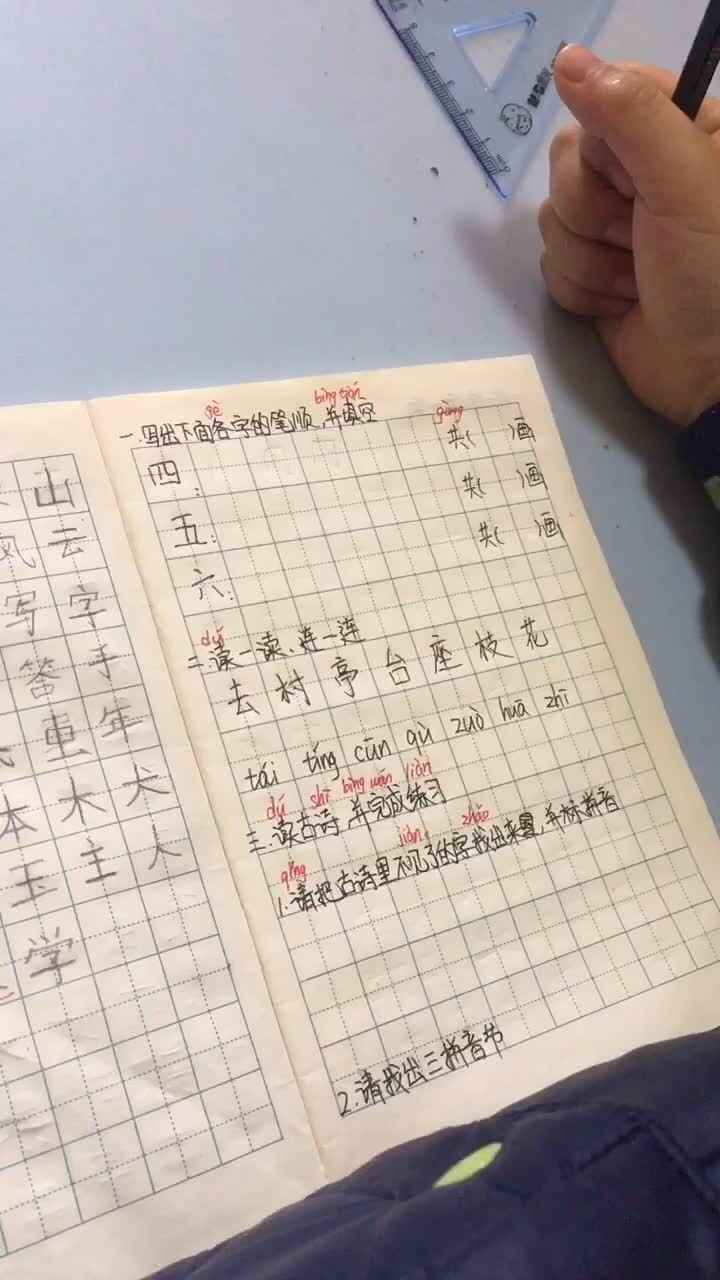 山
风 云
写 字
答 手
重 年
本 木 犬
玉 主 人
学
gè bìng tián
一.写出下面各字的笔顺,并填空
gòng
四: 共( )画
五: 共( )画
六: 共( )画
dú
二.读一读、连一连
去 村 亭 台 座 枝 花
tái tíng cūn qù zuò huā zhī
dú shī bìng wán liàn
三.读古诗,并完成练习
qǐng zhǎo
1.请把古诗里不见了的字找出来,并标拼音
2.请找出三拼音节